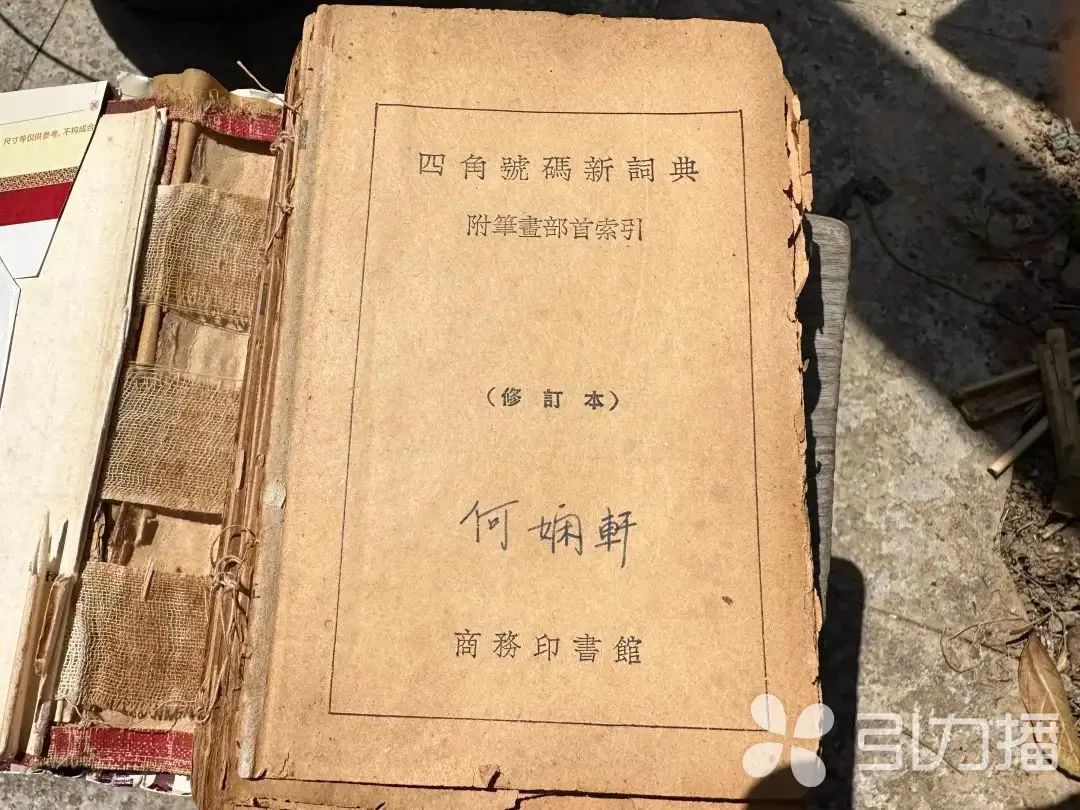 尺寸等仅供参考，不构成合
四角號碼新詞典
附筆畫部首索引
（修訂本）
何嫻軒
商務印書館
引力播